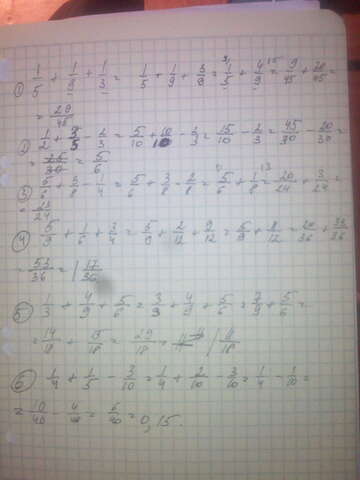 ① 1/5 + 1/9 + 1/3 = 1/5 + 1/9 + 3/9 = 1/5 + 4/9 = 9/45 + 20/45 =
= 29/45
② 1/2 + 5/5 - 2/3 = 5/10 + 10/10 - 2/3 = 15/10 - 2/3 = 45/30 - 20/30 =
= 25/30 = 5/6
③ 5/6 + 3/8 - 1/4 = 5/6 + 3/8 - 2/8 = 5/6 + 1/8 = 20/24 + 3/24 =
= 23/24
④ 5/9 + 1/6 + 3/4 = 5/9 + 2/12 + 9/12 = 5/9 + 11/12 = 20/36 + 33/36
= 53/36 = 1 17/36
⑤ 1/3 + 4/9 + 5/6 = 3/9 + 4/9 + 5/6 = 7/9 + 5/6 =
= 14/18 + 15/18 = 29/18 = 1 11/18
⑥ 1/4 + 1/5 - 3/10 = 1/4 + 2/10 - 3/10 = 1/4 - 1/10 =
= 10/40 - 4/40 = 6/40 = 0,15.